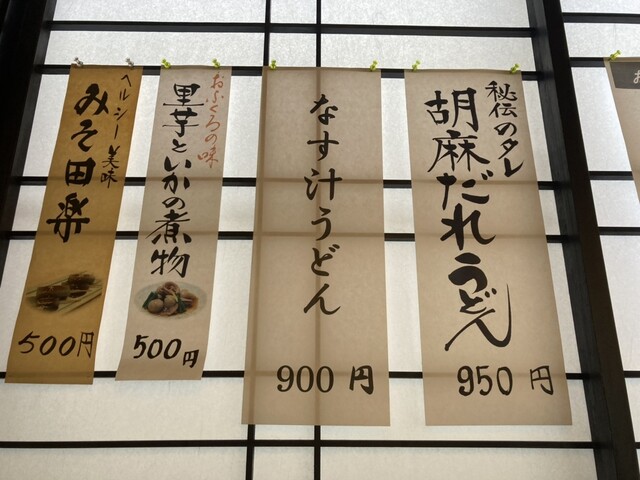 秘伝のタレ
胡麻だれうどん
950円
なす汁うどん
900円
おふくろの味
里芋といかの煮物
500円
ヘルシー美味
みそ田楽
500円
お